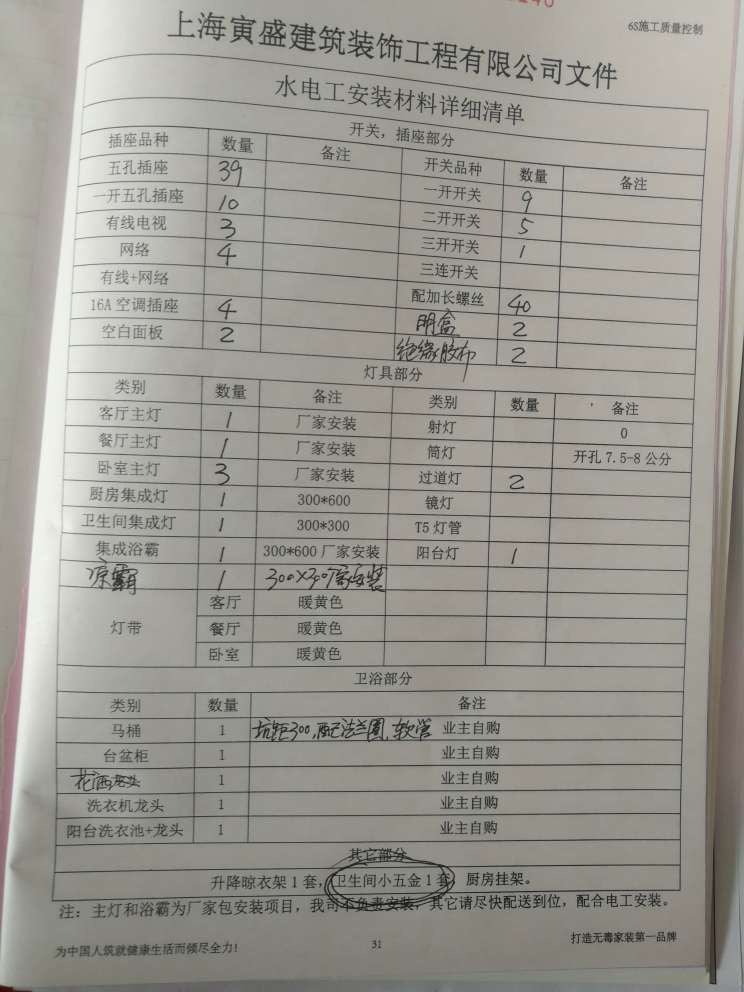 6S施工质量控制
上海寅盛建筑装饰工程有限公司文件
水电工安装材料详细清单
开关，插座部分
插座品种 数量 备注 开关品种 数量 备注
五孔插座 39 一开开关 9
一开五孔插座 10 二开开关 5
有线电视 3 三开开关 1
网络 4 三连开关
有线+网络 配加长螺丝 40
16A空调插座 4 明盒 2
空白面板 2 绝缘胶布 2
灯具部分
类别 数量 备注 类别 数量 备注
客厅主灯 1 厂家安装 射灯 0
餐厅主灯 1 厂家安装 筒灯 开孔 7.5-8 公分
卧室主灯 3 厂家安装 过道灯 2
厨房集成灯 1 300*600 镜灯
卫生间集成灯 1 300*300 T5 灯管
集成浴霸 1 300*600 厂家安装 阳台灯 1
凉霸 1 300×300厂家安装
灯带 客厅 暖黄色
餐厅 暖黄色
卧室 暖黄色
卫浴部分
类别 数量 备注
马桶 1 坑距300,配法兰圈,软管 业主自购
台盆柜 1 业主自购
花洒龙头 1 业主自购
洗衣机龙头 1 业主自购
阳台洗衣池+龙头 1 业主自购
其它部分
升降晾衣架 1 套，卫生间小五金 1 套，厨房挂架。
注：主灯和浴霸为厂家包安装项目，我司不负责安装，其它请尽快配送到位，配合电工安装。
为中国人筑就健康生活而倾尽全力！ 31 打造无毒家装第一品牌